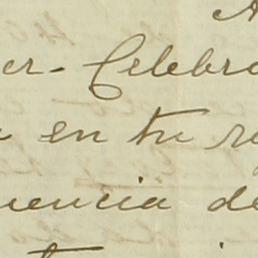 er- Celebro
en tu re
uencia de